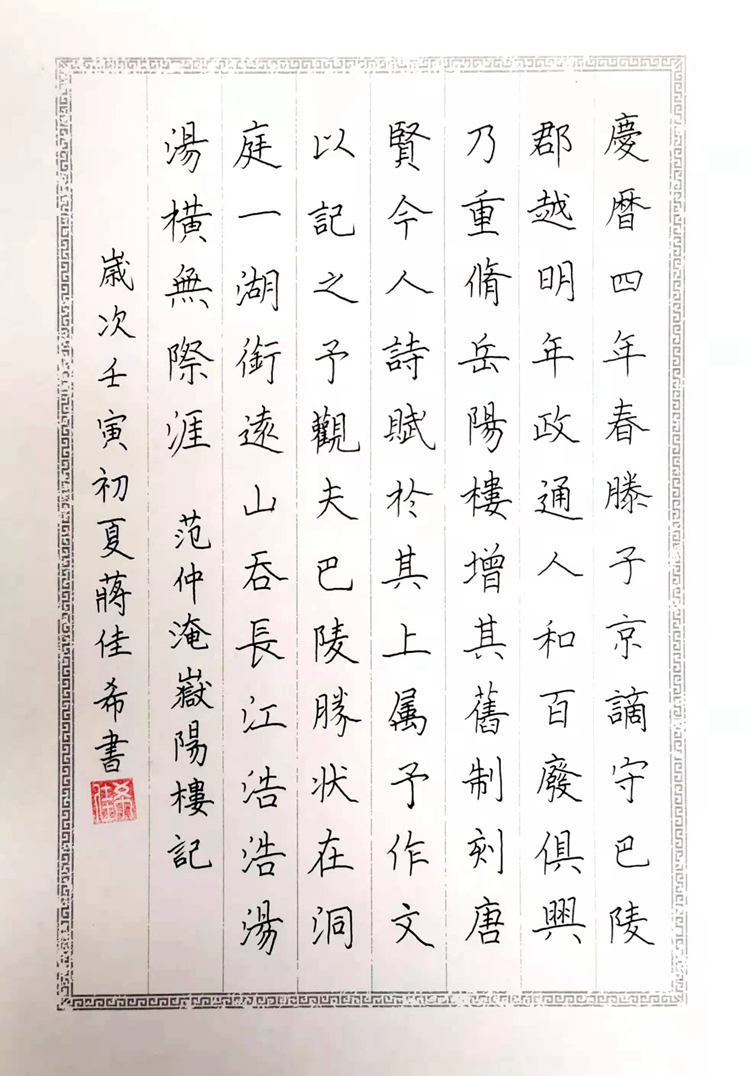 慶曆四年春滕子京謫守巴陵
郡越明年政通人和百廢俱興
乃重脩岳陽樓增其舊制刻唐
賢今人詩賦於其上属予作文
以記之予觀夫巴陵勝状在洞
庭一湖銜遠山吞長江浩浩湯
湯橫無際涯 范仲淹嶽陽樓記
歲次壬寅初夏蔣佳希書
佳希